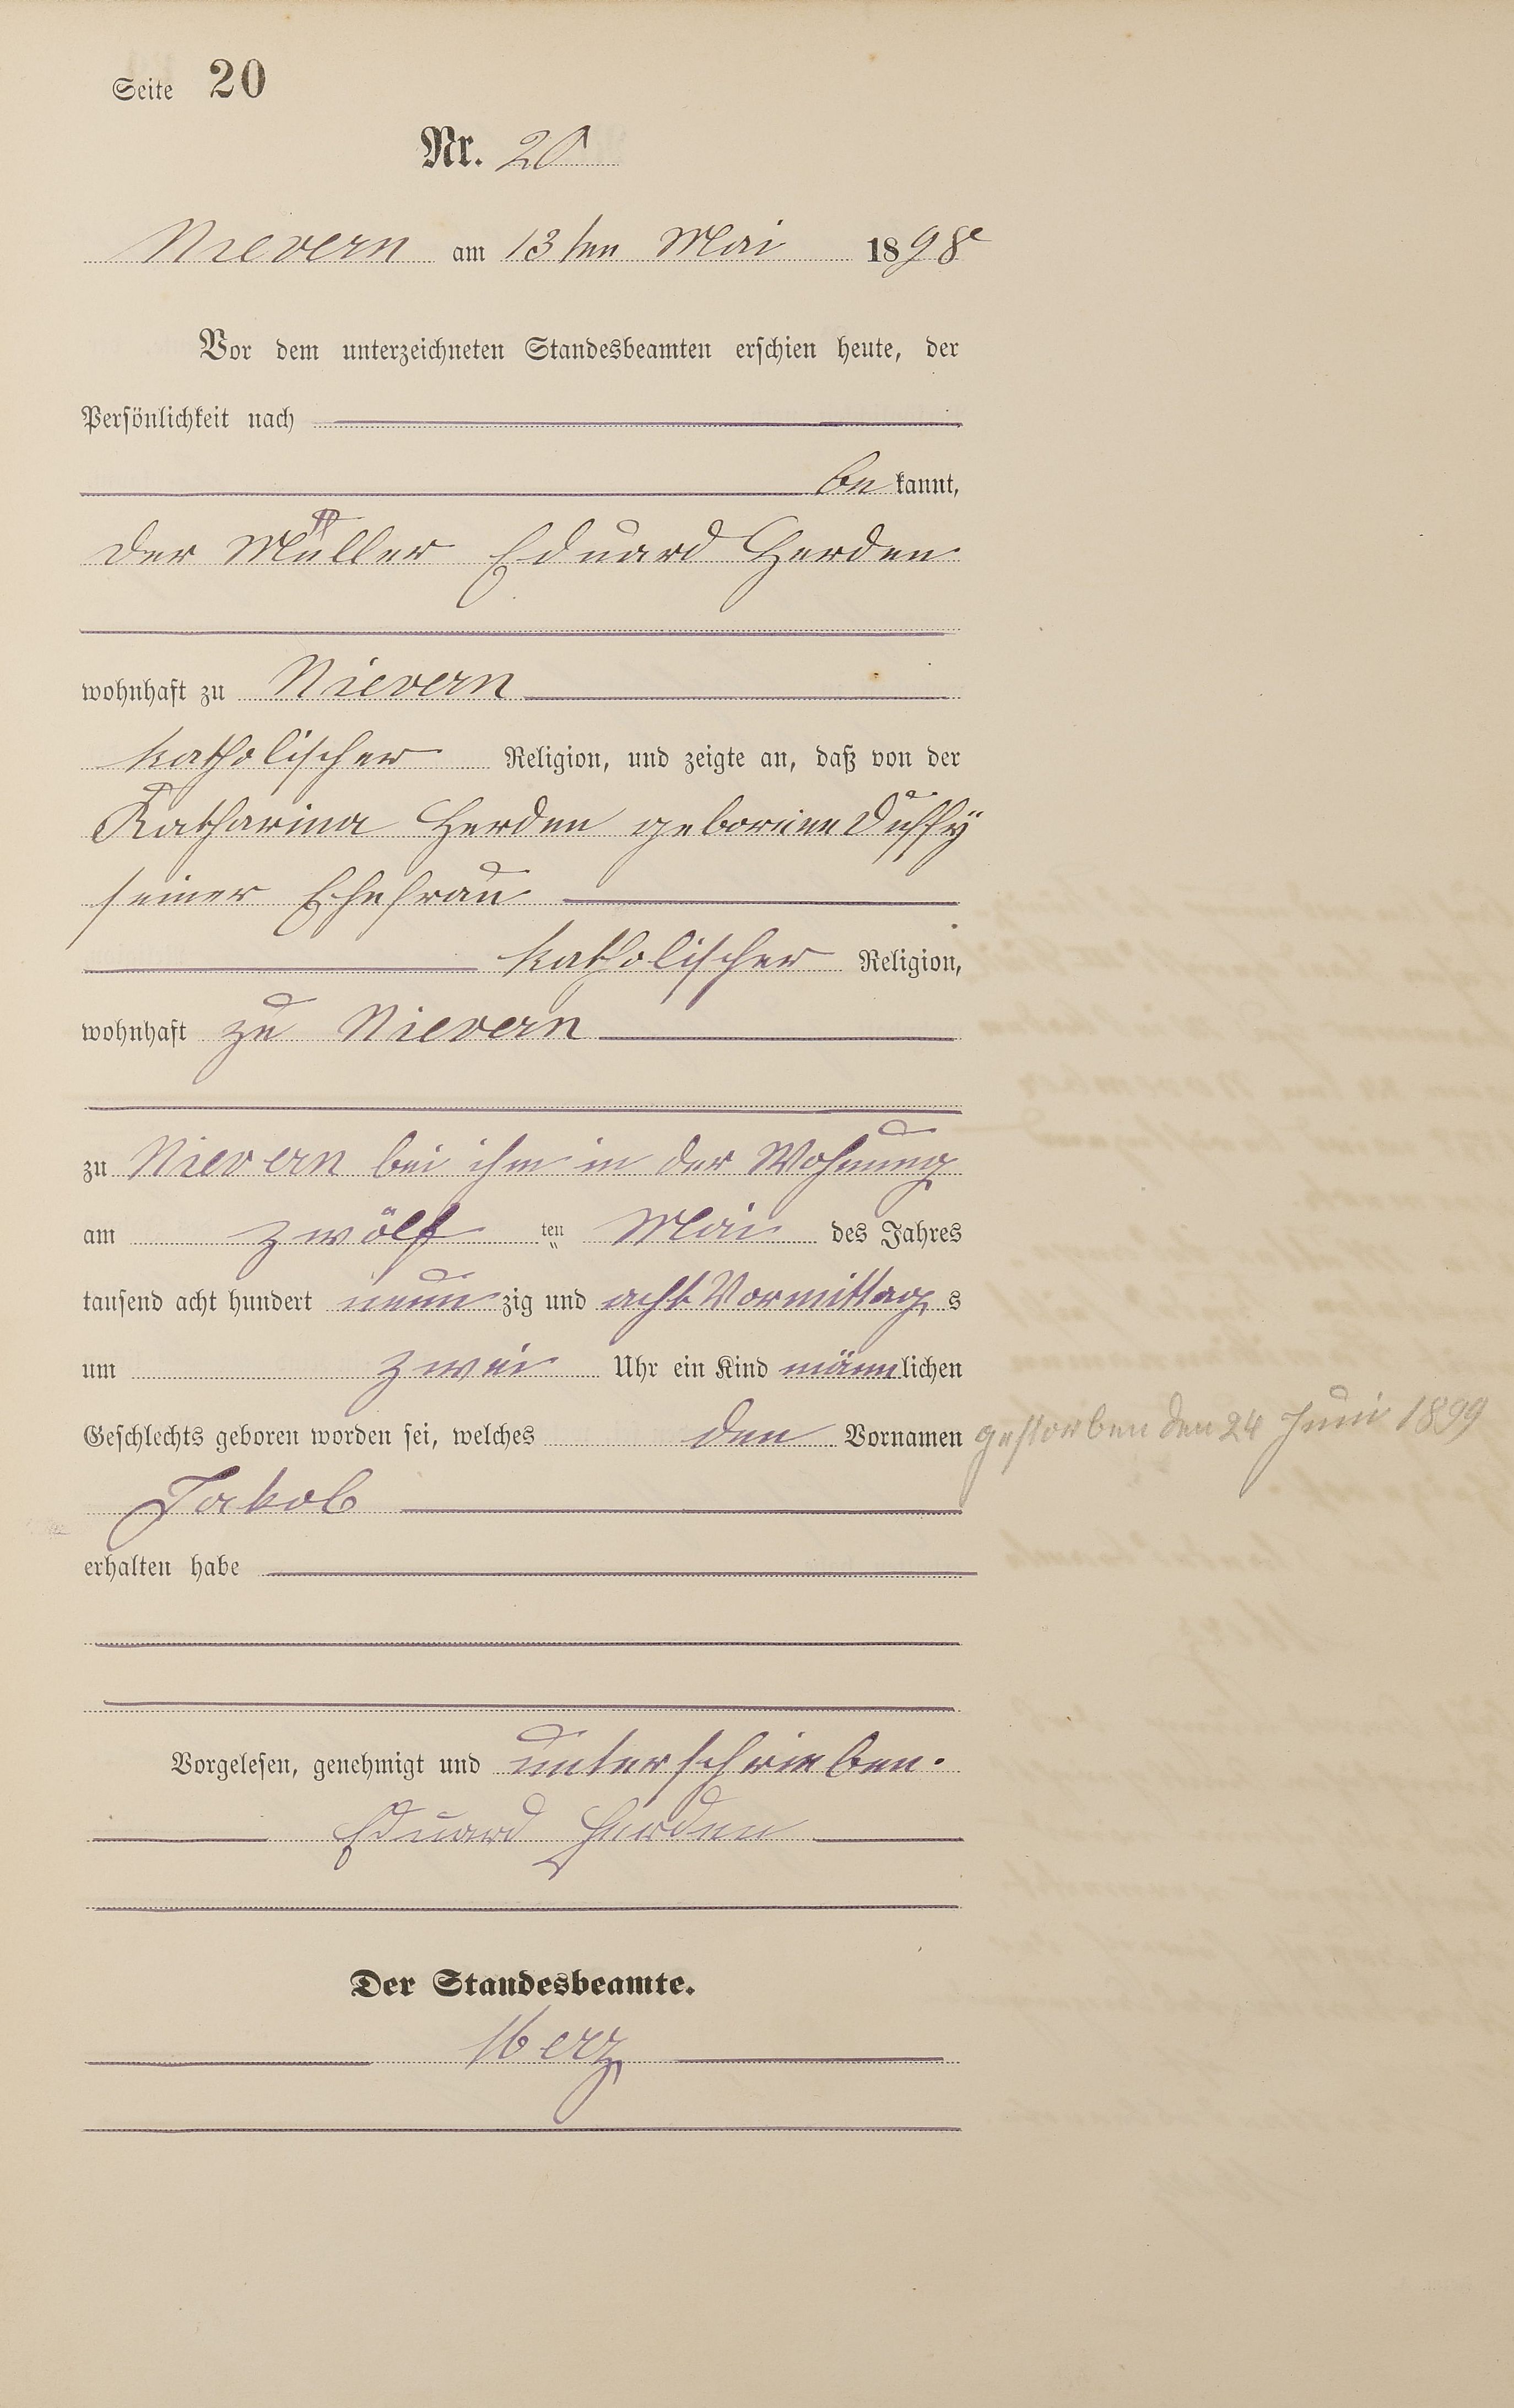 Seite 20
Nr. 20
Nievern am 13ten Mai 1898
Vor dem unterzeichneten Standesbeamten erschien heute, der
Persönlichkeit nach
be kannt,
der Müller Eduard Herden
wohnhaft zu Nievern
katholischer Religion, und zeigte an, daß von der
Katharina Herden geborene Duffy
seiner Ehefrau
katholischer Religion,
wohnhaft zu Nievern
zu Nievern bei ihm in der Wohnung
am zwölf ten Mai des Jahres
tausend acht hundert neun zig und acht Vormittag s
um zwei Uhr ein Kind männlichen
Geschlechts geboren worden sei, welches den Vornamen
gestorben den 24 Juni 1899
Jakob
erhalten habe
Vorgelesen, genehmigt und unterschrieben.
Eduard Herden
Der Standesbeamte.